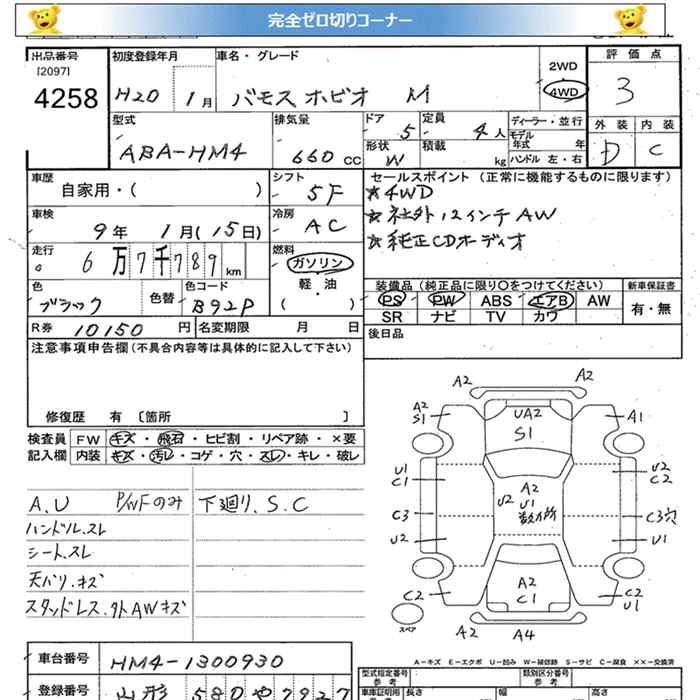 完全ゼロ切りコーナー
出品番号 初度登録年月 車名・グレード 評価点
[2097]
4258 H20 1月 バモスホビオ M 2WD 4WD 3
型式 排気量 ドア 定員 ディーラー・並行 外装 内装
ABA-HM4 660cc 5 4人 モデル年式 年 D C
形状 W 積載 kg ハンドル 左・右
車歴 シフト セールスポイント(正常に機能するものに限ります)
自家用・( ) 5F ☆4WD
車検 冷房 ☆社外12インチAW
9年 1月(15日) AC ☆純正CDオーディオ
走行 燃料
6万7千789km ガソリン
軽・油
( ・ )
装備品(純正品に限り○をつけてください) 新車保証書
色 色替 色コード PS PW ABS エアB AW 有・無
ブラック B92P SR ナビ TV カワ
R券 10150円 名変期限 月 日 後日品
注意事項申告欄(不具合内容等は具体的に記入して下さい)
修復歴 有 〔箇所 〕
検査員 FW キズ・飛石・ヒビ割・リペア跡・×要
記入欄 内装 キズ・汚レ・コゲ・穴・スレ・キレ・破レ
A.U P/WFのみ 下廻り.S.C
ハンドル.スレ
シート.スレ
天バリ.キズ
スタッドレス.外AWキズ
A2 A2
A2 S1 UA2 S1 A1
U1 C1 A2 U1 数カ所 U2 U2 C2
C3 C3穴
U2 U1
C2 A2 C1 C2 U1
スペア A2 A4
A-キズ E-エクボ U-凹み W-補修跡 S-サビ C-腐食 ××-交換済
車台番号 HM4-1300930
型式指定番号 参考 類別区分番号 参考
登録番号 山形 580 や 7927
車庫証明用 参考 長さ 幅 高さ